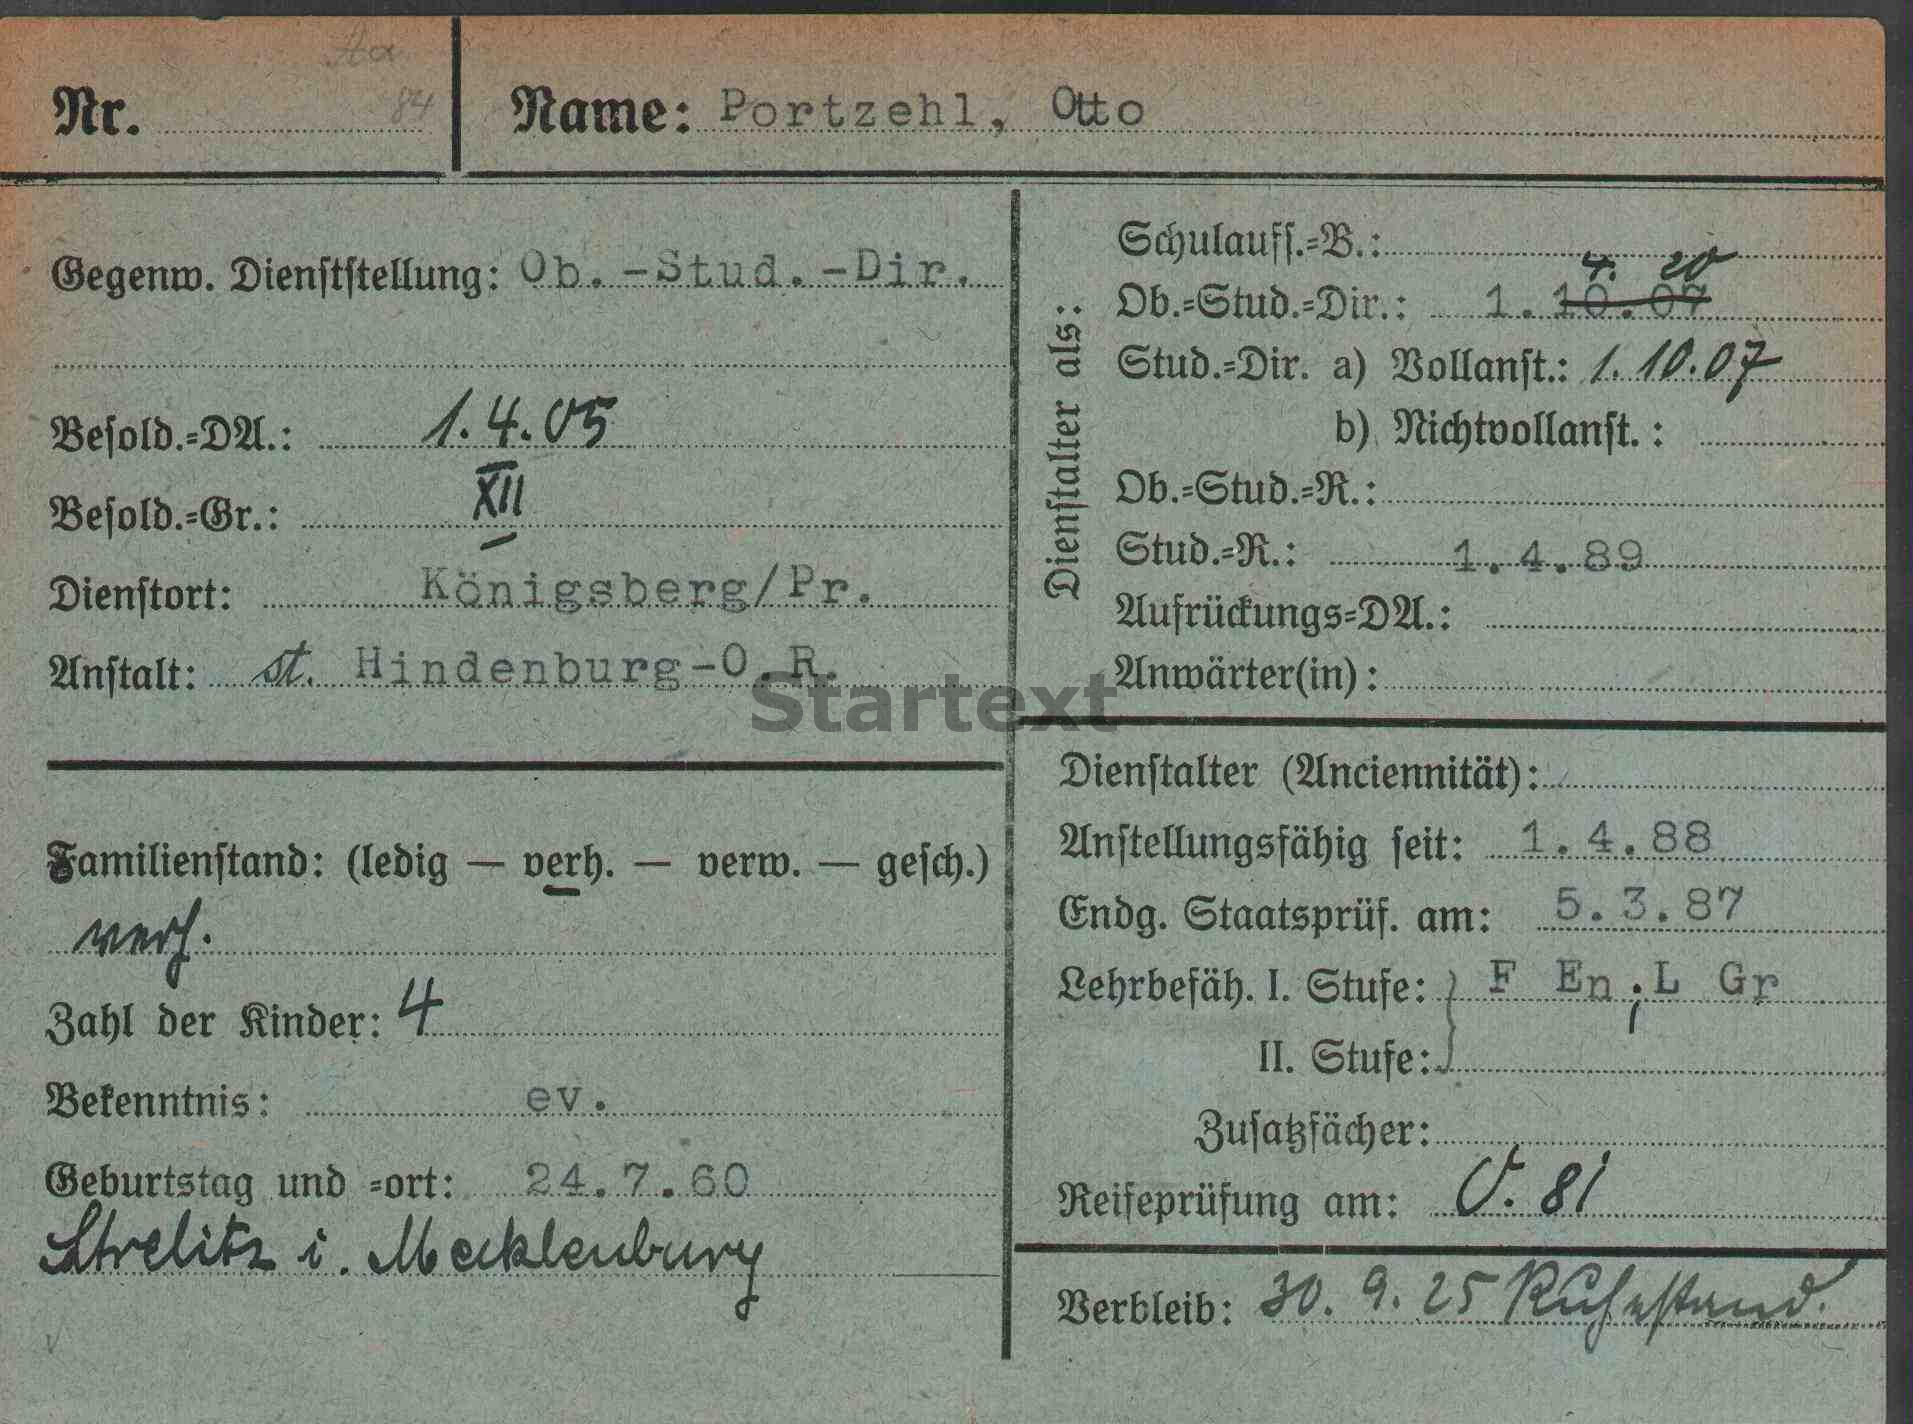 Aa
Nr. 84
Name: Portzehl, Otto
Gegenw. Dienststellung: Ob.-Stud.-Dir.
Besold.-DA.: 1.4.05
Besold.-Gr.: XII
Dienstort: Königsberg/Pr.
Anstalt: st. Hindenburg-O.R.
Familienstand: (ledig — verh. — verw. — gesch.)
verh.
Zahl der Kinder: 4
Bekenntnis: ev.
Geburtstag und -ort: 24.7.60
Strelitz i. Mecklenburg
Dienstalter als:
Schulaufs.-B.:
4. 20
Ob.-Stud.-Dir.: 1.10.07
Stud.-Dir. a) Vollanst.: 1.10.07
b) Nichtvollanst.:
Ob.-Stud.-R.:
Stud.-R.: 1.4.89
Aufrückungs-DA.:
Anwärter(in):
Dienstalter (Anciennität):
Anstellungsfähig seit: 1.4.88
Endg. Staatsprüf. am: 5.3.87
Lehrbefäh. I. Stufe: F En, L Gr
II. Stufe:
Zusatzfächer:
Reifeprüfung am: O. 81
Verbleib: 30.9.25 Ruhestand.
Startext